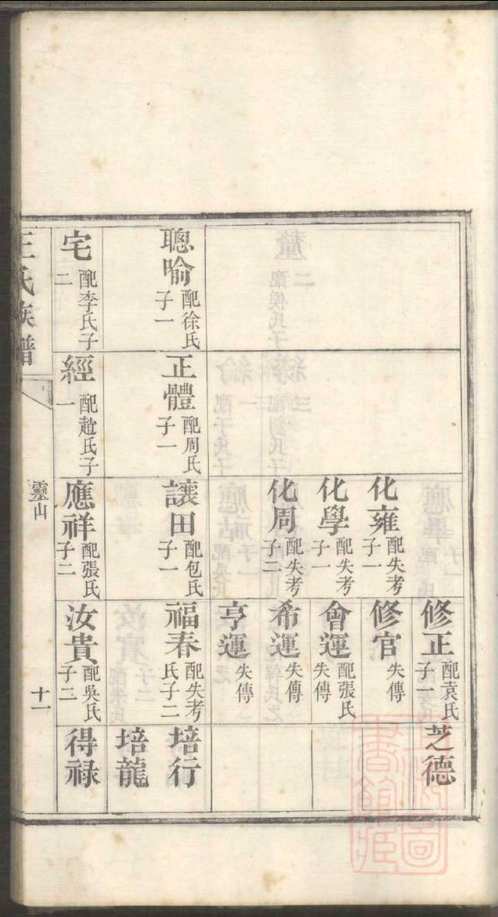 化雍 配失考 子一
化學 配失考 子一
化周 配失考 子二
修正 配袁氏 子一
修官 失傳
會運 配張氏 失傳
希運 失傳
亨運 失傳
芝德
聰喻 配徐氏 子一
正體 配周氏 子一
讓田 配包氏 子一
福春 配失考 氏子二
培行
培龍
宅 配李氏子 二
經 配趙氏子 一
應祥 配張氏 子二
汝貴 配吳氏 子三
得祿
王氏族譜
靈山
十一